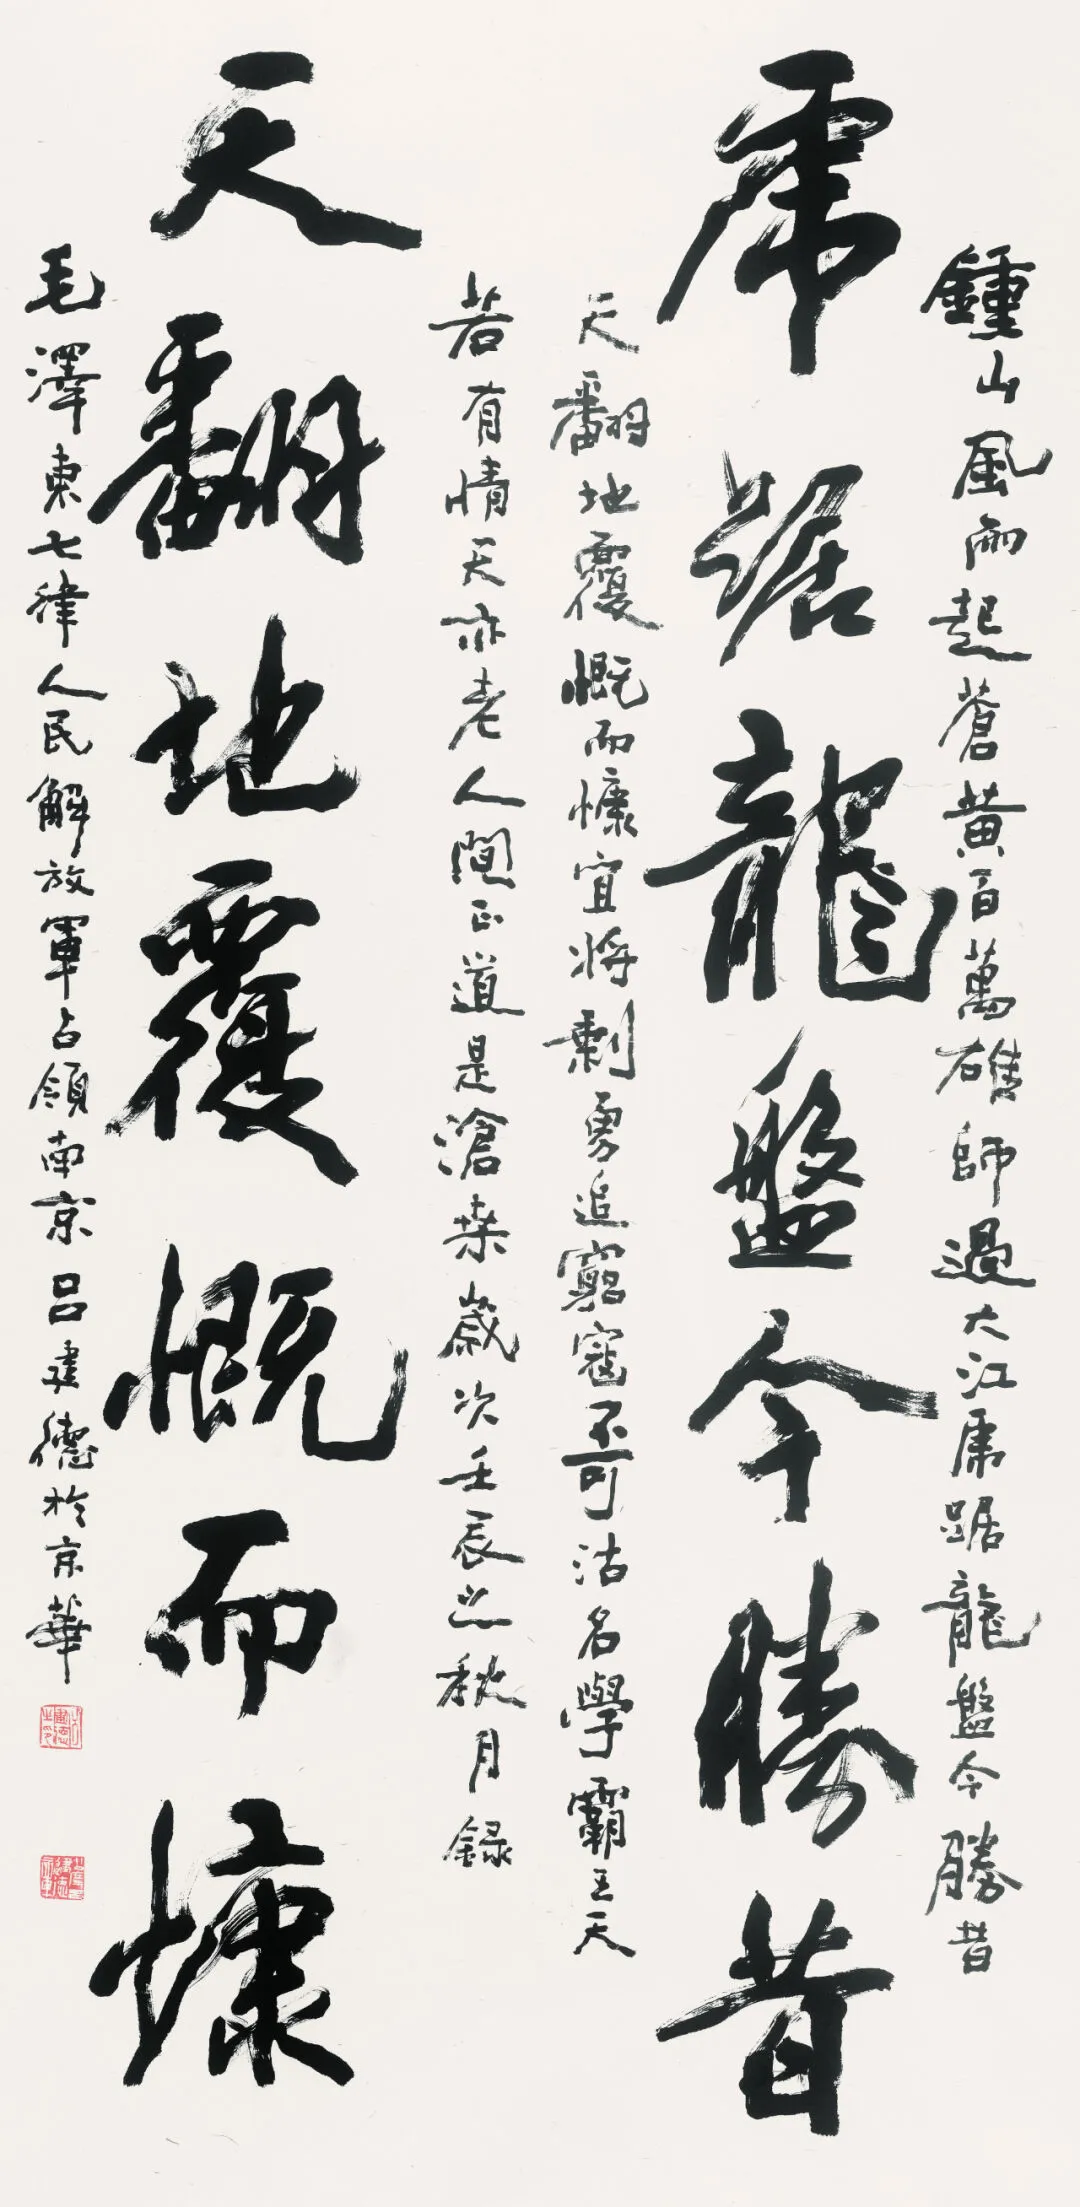 鍾山風雨起蒼黄百萬雄師過大江虎踞龍盤今勝昔
虎踞龍盤今勝昔
天翻地覆慨而慷宜將剩勇追窮寇不可沽名學霸王天
若有情天亦老人間正道是滄桑歲次壬辰之秋月録
天翻地覆慨而慷
毛澤東七律人民解放軍占領南京 吕建德於京華